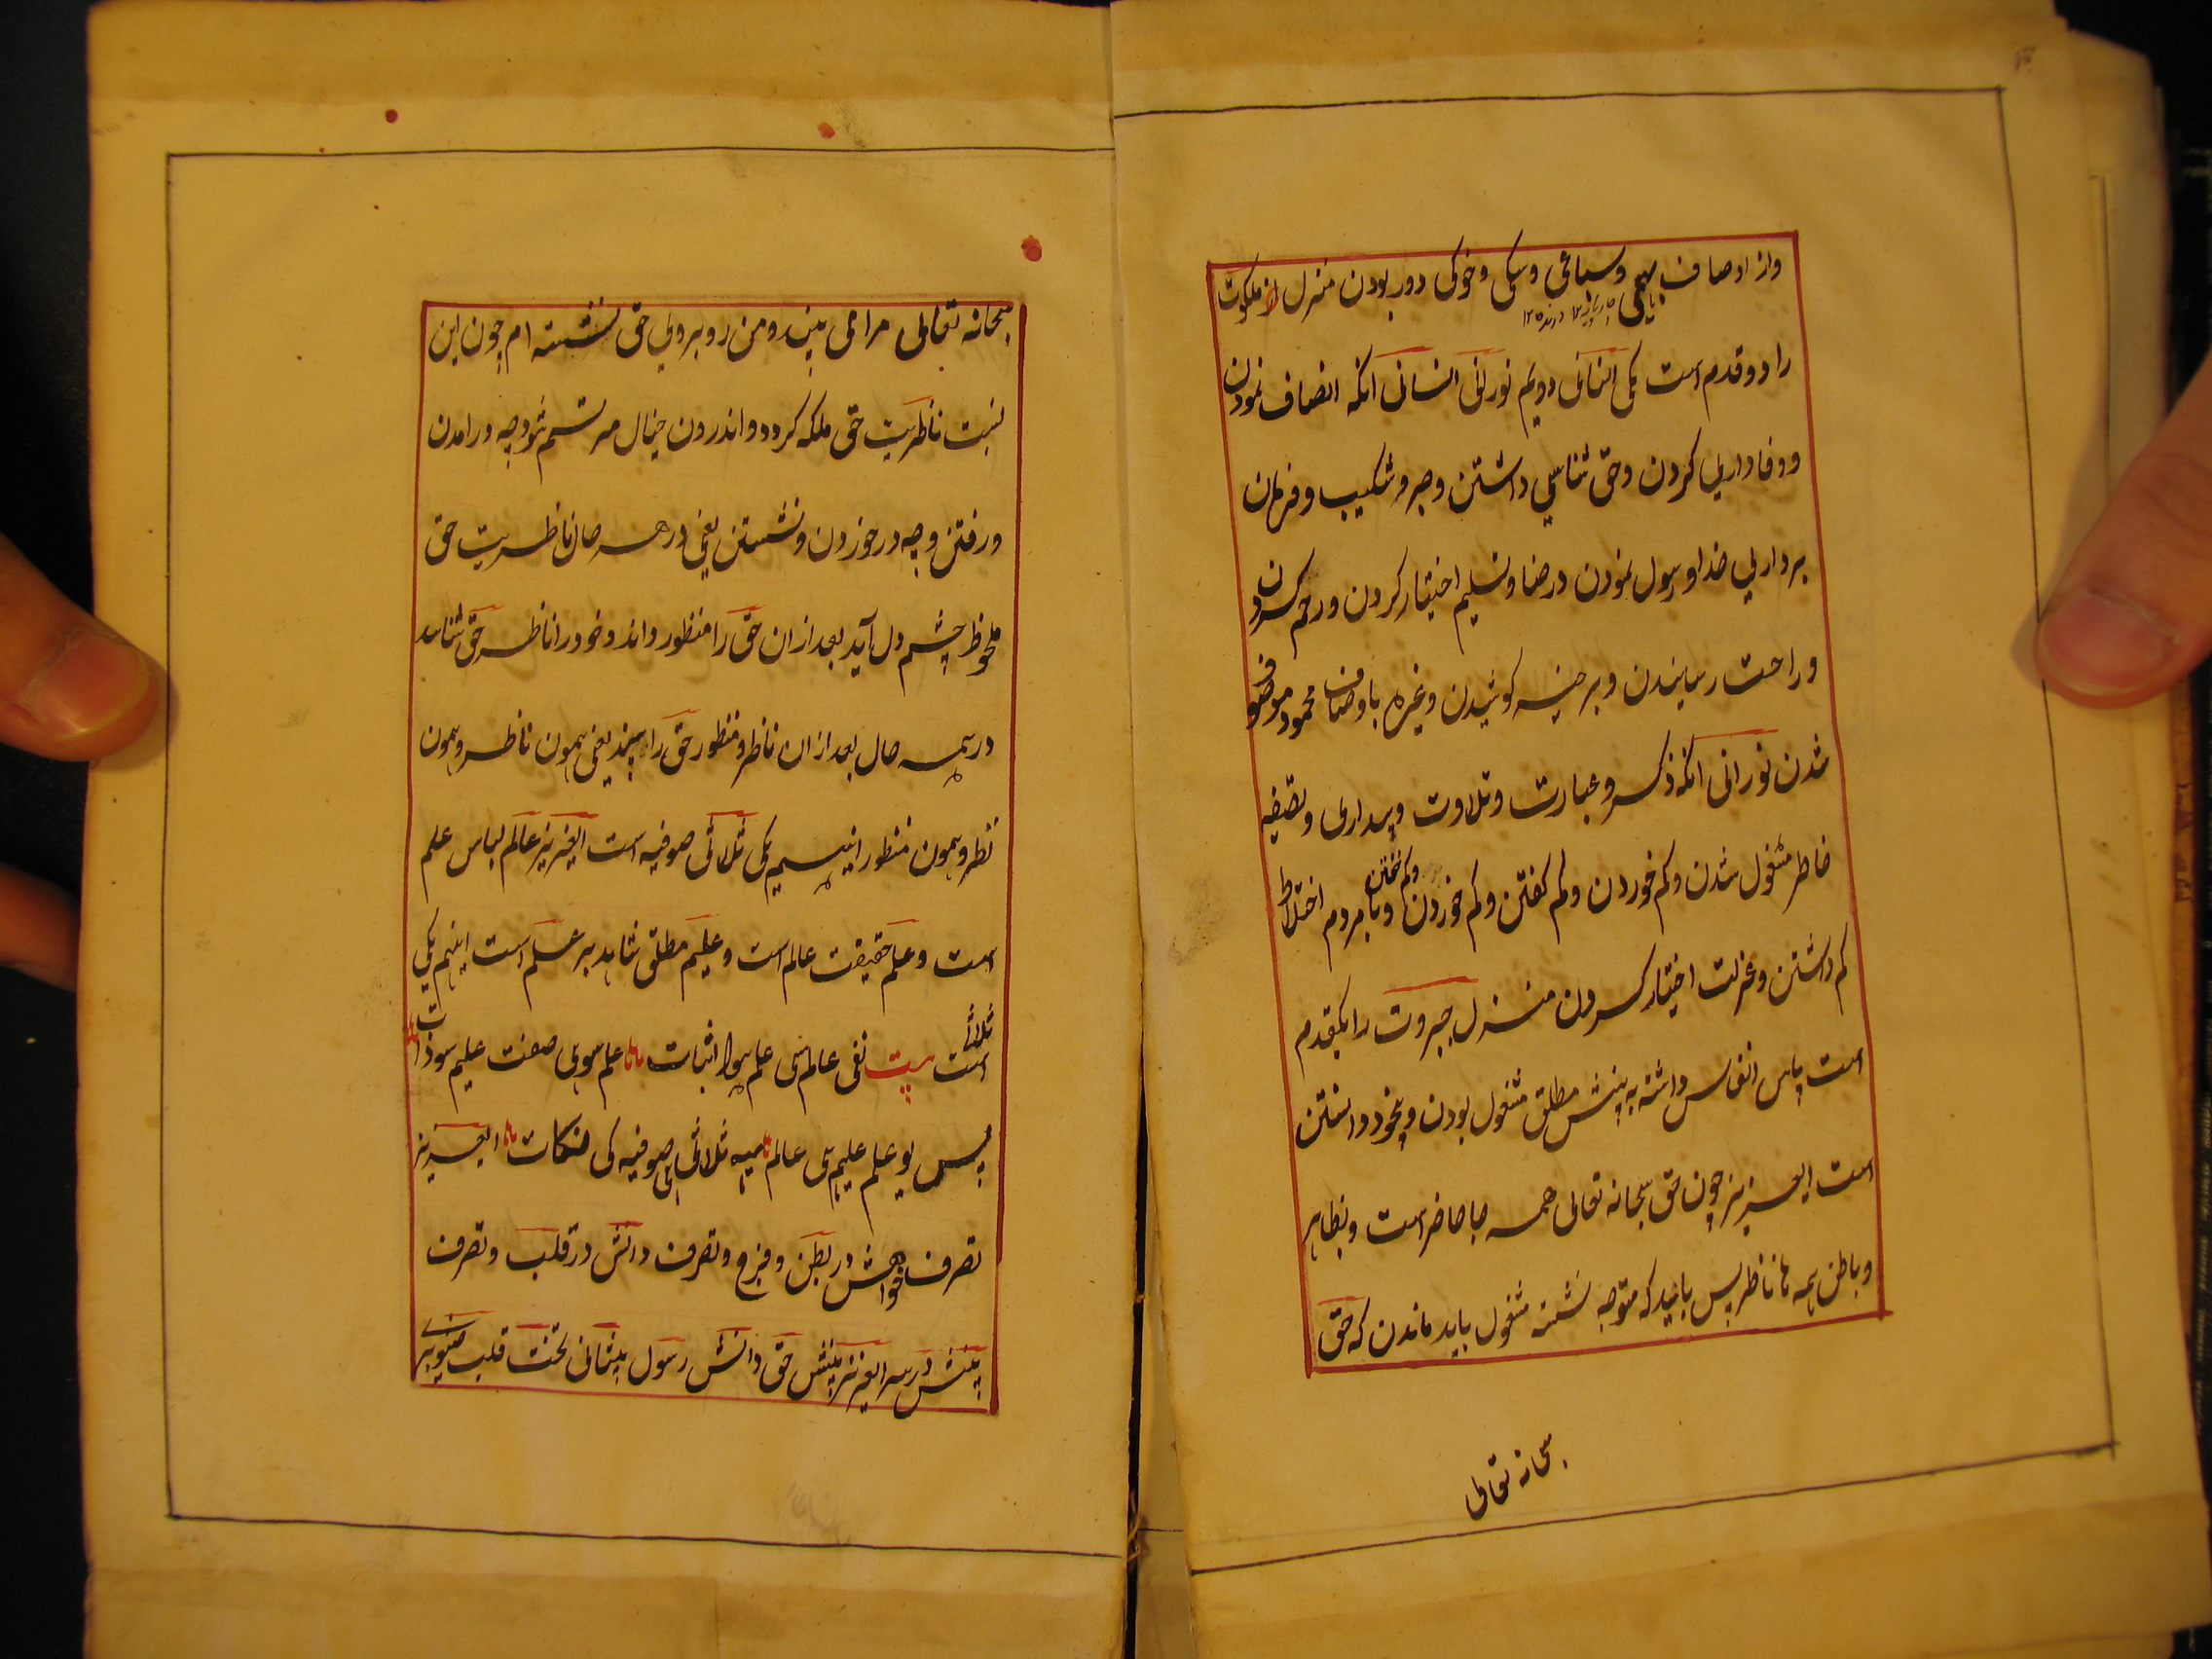 واز اوصاف بهیمی وسباعی وسگی وخوکی دور بودن منزل از ملکوت
را دو قدم است یکی انسانی دویم نورانی انسانی آنکه انصاف نمودن
ووفاداری کردن وحق شناسی داشتن وصبر وشکیب وفرمان
برداری خدا ورسول نمودن درضا وتسلیم اختیار کردن ورحم کردن
وراحت رسانیدن وبر خیر کوشیدن وغیره باوصاف محمود موصوف
شدن نورانی آنکه ذکر وعبارت وتلاوت وبیداری وتصفیه
خاطر مشغول شدن وکم خوردن وکم گفتن وکم خوردن وکم خفتن وبا مردم اختلاط
کم داشتن وعزلت اختیار کردن منزل جبروت را یکقدم
است پاس انفاس داشته به بینش مطلق مشغول بودن وبیخود دانستن
است ایعزیز چون حق سبحانه تعالی همه جا حاضر است وبظاهر
وباطن همه ما ناظر پس باید که متوجه نشسته مشغول باید ماندن که حق
سبحانه تعالی
سبحانه تعالی مرا می بیند ومن روبروی حق نشسته ام چون این
نسبت ناظریت حق ملکه گردد واندرون خیال مرتسم شود چه درامدن
ورفتن وچه در خوردن ونشستن یعنی در هر حال ناظریت حق
ملحوظ چشم دل آید بعد ازان حق را منظور داند وخود را ناظر حق شناسد
در همه حال بعد ازان ناظر ومنظور حق را بیند یعنی همون ناظر وهمون
نظر وهمون منظور اینهم یکی ثلاثی صوفیه است ایعزیز عالم لباس علم
است وعلم حقیقت عالم است وعلیم مطلق شاهد بر علم است اینهم یکی
ثلاثی است بیت نفی عالم سی علم هوا اثبات علم سوی صفت علیم سو ذات
پس یو علم علیم سی عالم ثلاثی صوفیه کی نکات ایعزیز
تصرف خواهش در بطن وفرج وتصرف دانش در قلب وتصرف
بینش در سر ایعزیز بینش حق دانش رسول پیشانی تحت قلب صنوبری